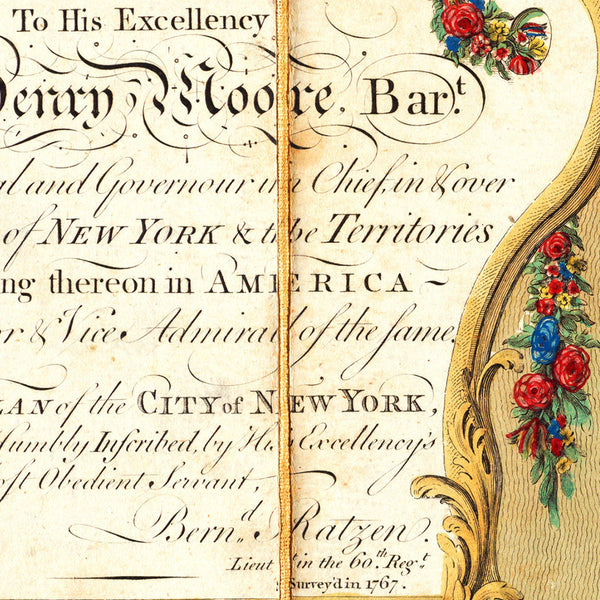 To His Excellency
Henry Moore, Bar.t
al and Governour in Chief, in & over
of NEW YORK & the Territories
ng thereon in AMERICA ~
or & Vice Admiral of the same.
LAN of the CITY of NEW YORK,
Humbly Inscribed, by His Excellency's
ost Obedient Servant,
Bern.d Ratzen.
Lieut in the 60.th Reg.t
Survey'd in 1767.